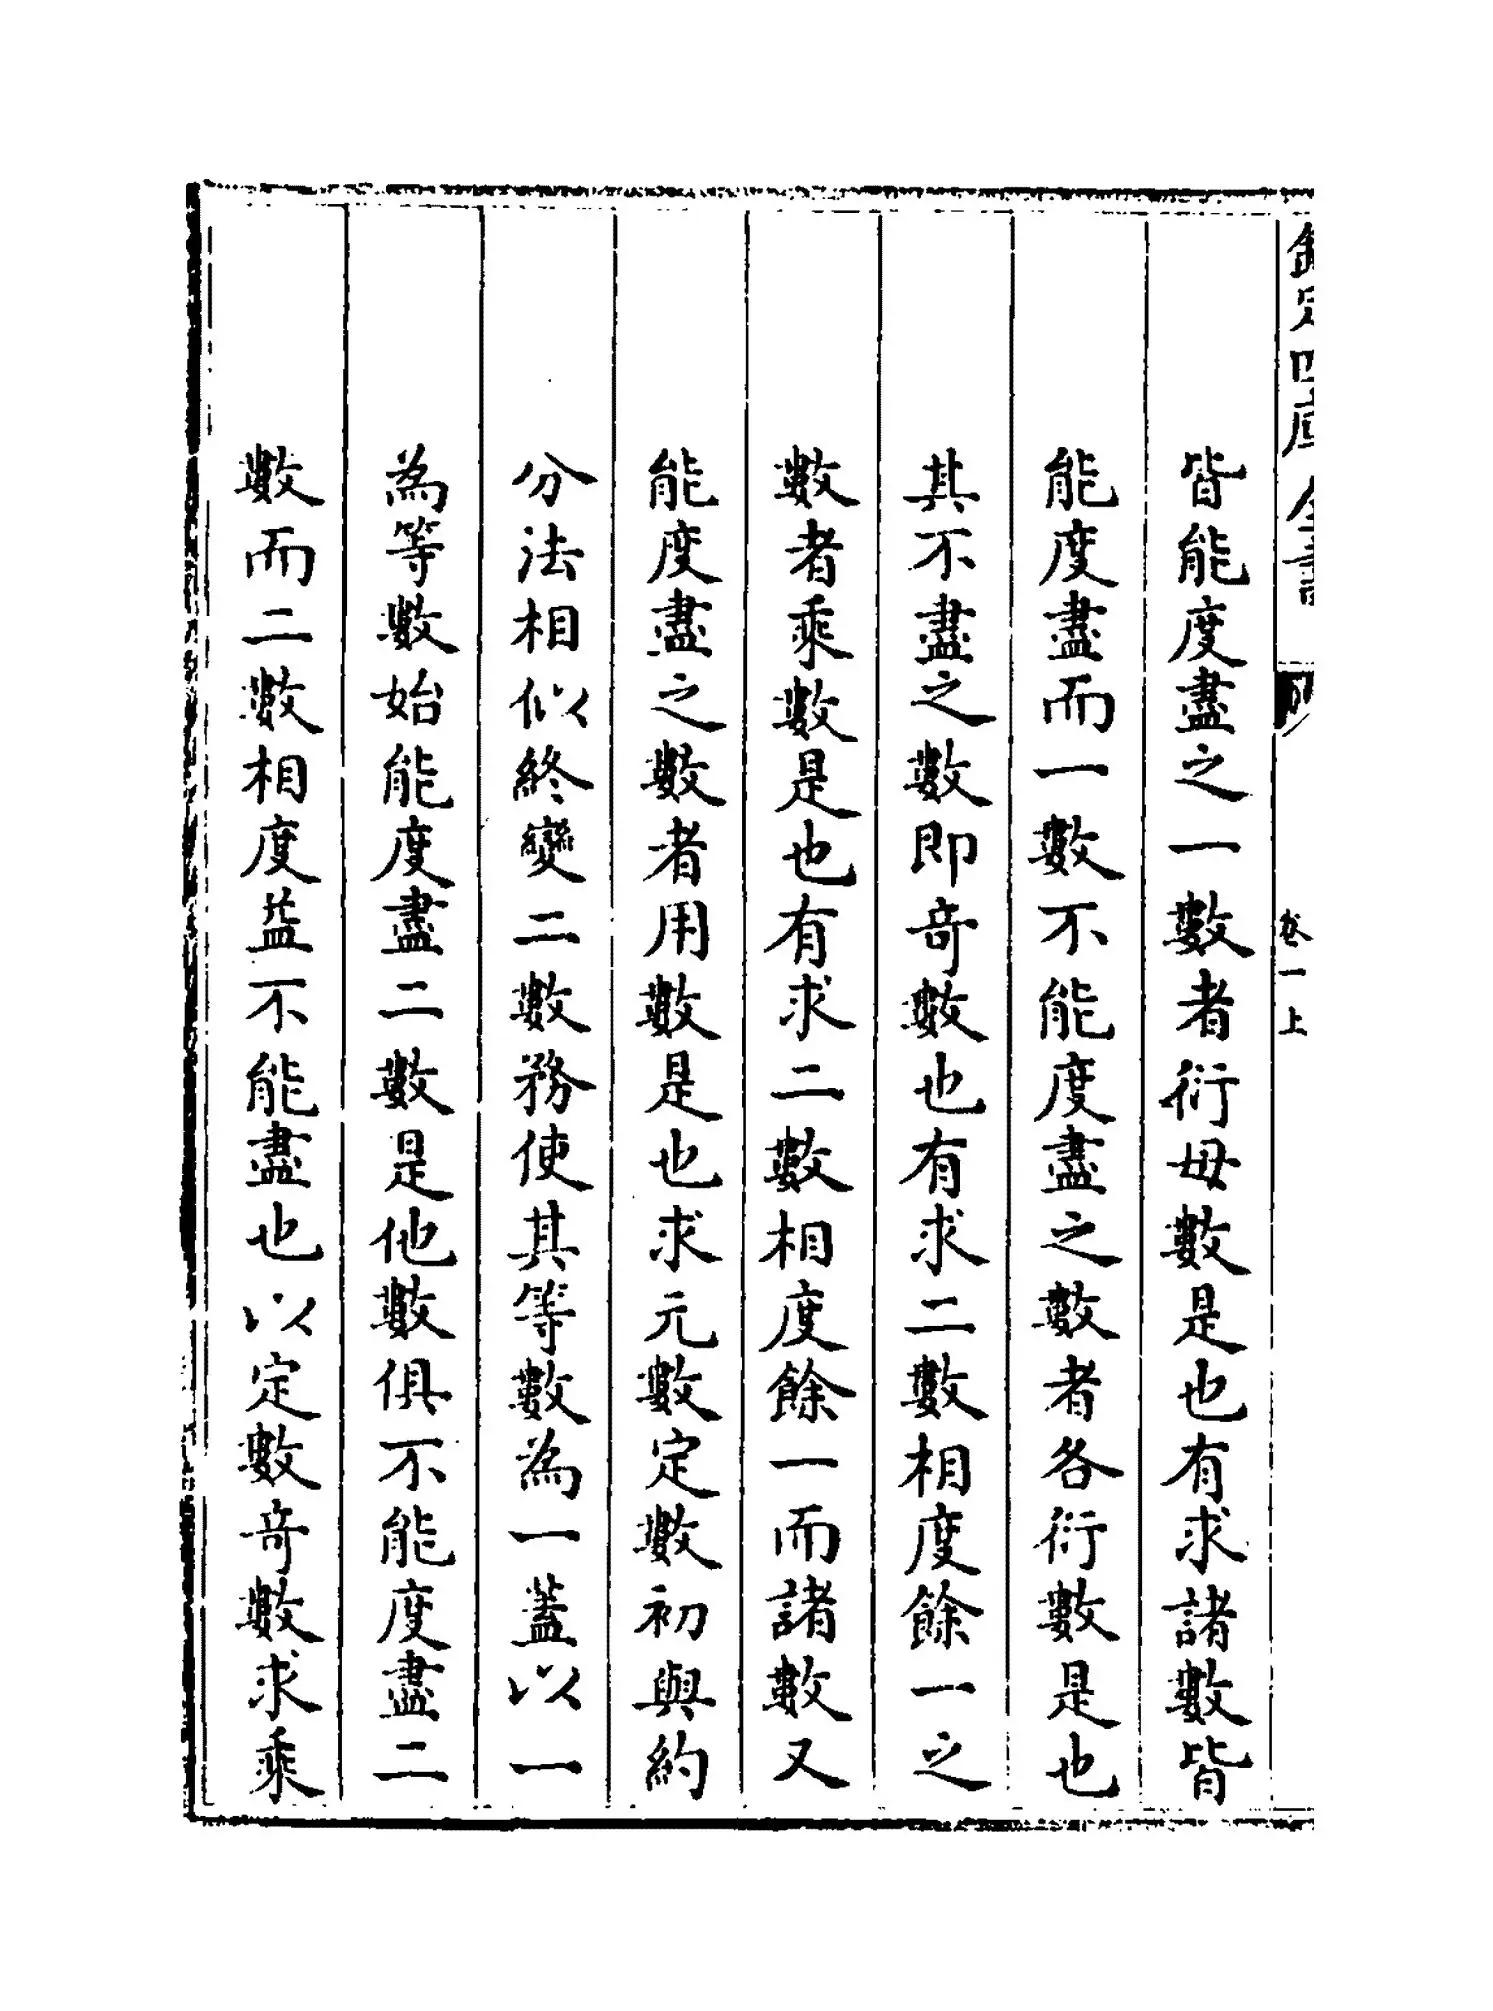 欽定四庫全書
卷一上
皆能度盡之一數者衍母數是也有求諸數皆
能度盡而一數不能度盡之數者各衍數是也
其不盡之數即奇數也有求二數相度餘一之
數者乘數是也有求二數相度餘一而諸數又
能度盡之數者用數是也求元數定數初與約
分法相似終變二數務使其等數為一蓋以一
為等數始能度盡二數是他數俱不能度盡二
數而二數相度益不能盡也以定數奇數求乘